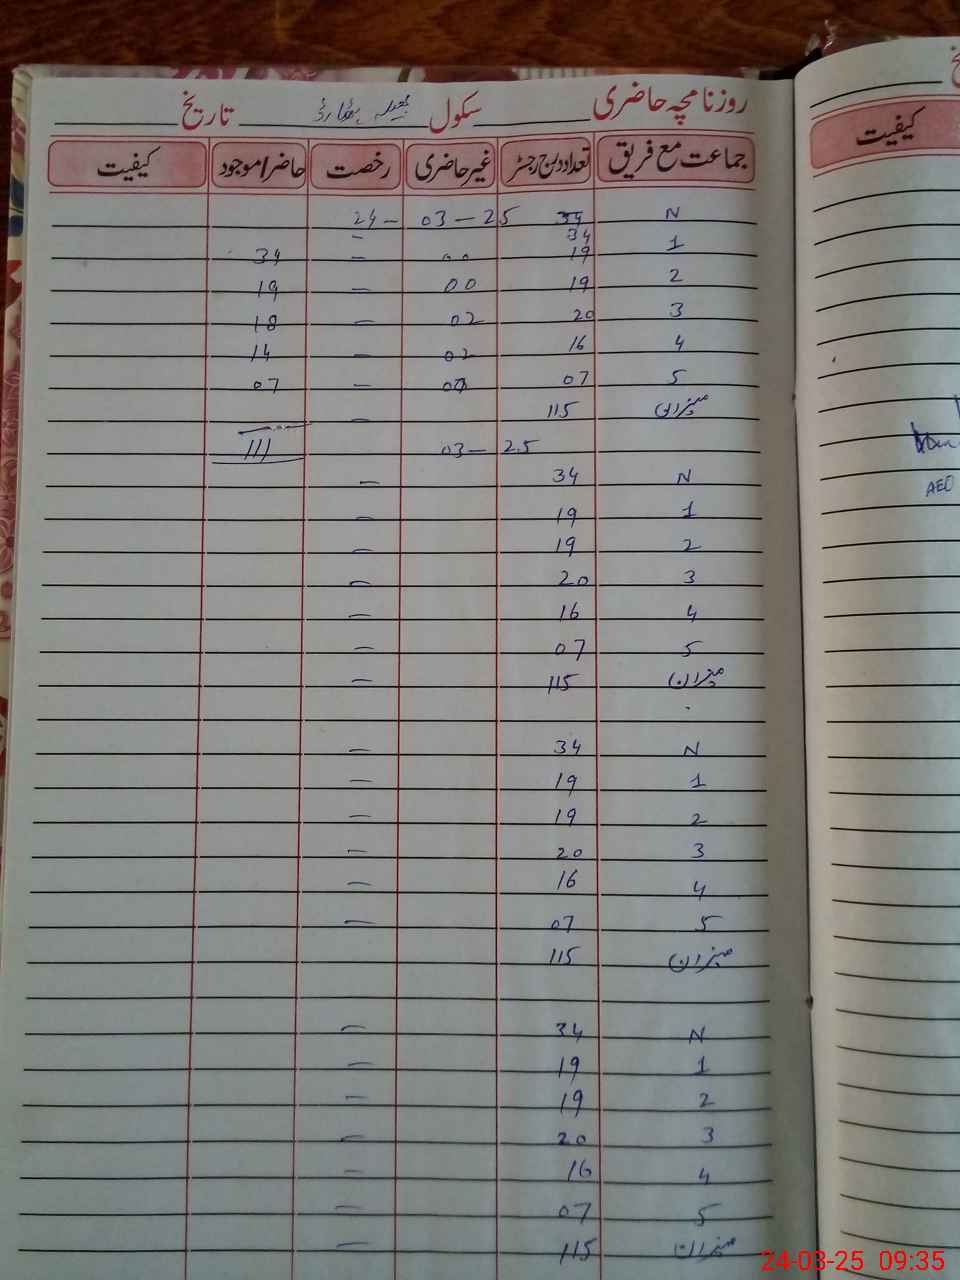 روزنامچہ حاضری سکول تاریخ
جماعت مع فریق تعداد درج رجسٹر غیر حاضری رخصت حاضر/موجود کیفیت
N 34 24 - 03 - 25
1 34 19 00 - 34
2 19 00 - 19
3 20 02 - 18
4 16 02 - 14
5 07 00 - 07
میزان 115 - 111
03 - 25
N 34 -
1 19 -
2 19 -
3 20 -
4 16 -
5 07 -
میزان 115 -
N 34 -
1 19 -
2 19 -
3 20 -
4 16 -
5 07 -
میزان 115
N 34 -
1 19 -
2 19 -
3 20 -
4 16 -
5 07 -
میزان 115 -
کیفیت
AEO
24-03-25 09:35